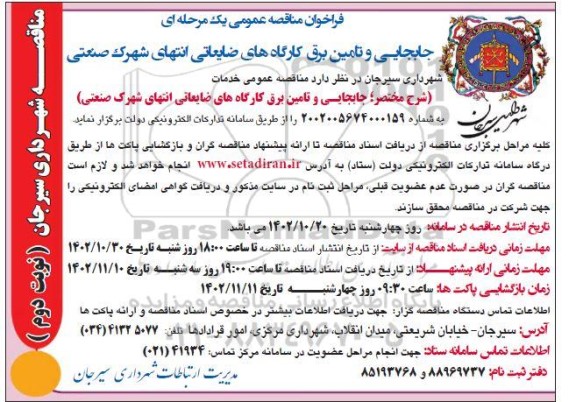 فراخوان مناقصه عمومی یک مرحله ای
جابجایی و تامین برق کارگاه های ضایعاتی انتهای شهرک صنعتی
شهرداری سیرجان در نظر دارد مناقصه عمومی خدمات
(شرح مختصر؛ جابجایی و تامین برق کارگاه های ضایعاتی انتهای شهرک صنعتی)
به شماره ۲۰۰۲۰۰۵۶۷۴۰۰۰۱۵۹ را از طریق سامانه تدارکات الکترونیکی دولت برگزار نماید.
کلیه مراحل برگزاری مناقصه از دریافت اسناد مناقصه تا ارائه پیشنهاد مناقصه گران و بازگشایی پاکت ها از طریق
درگاه سامانه تدارکات الکترونیکی دولت (ستاد) به آدرس www.setadiran.ir انجام خواهد شد و لازم است
مناقصه گران در صورت عدم عضویت قبلی، مراحل ثبت نام در سایت مذکور و دریافت گواهی امضای الکترونیکی را
جهت شرکت در مناقصه محقق سازند.
تاریخ انتشار مناقصه در سامانه: روز چهارشنبه تاریخ ۱۴۰۲/۱۰/۲۰ می باشد.
مهلت زمانی دریافت اسناد مناقصه از سایت: از تاریخ انتشار اسناد مناقصه تا ساعت ۱۸:۰۰ روز شنبه تاریخ ۱۴۰۲/۱۰/۳۰
مهلت زمانی ارائه پیشنهاد: از تاریخ دریافت اسناد مناقصه تا ساعت ۱۹:۰۰ روز سه شنبه تاریخ ۱۴۰۲/۱۱/۱۰
زمان بازگشایی پاکت ها: ساعت ۰۹:۳۰ روز چهارشنبه تاریخ ۱۴۰۲/۱۱/۱۱
اطلاعات تماس دستگاه مناقصه گزار: جهت دریافت اطلاعات بیشتر در خصوص اسناد مناقصه و ارائه پاکت ها
آدرس: سیرجان- خیابان شریعتی، میدان انقلاب، شهرداری مرکزی، امور قراردادها تلفن: ۵۰۷۷ ۴۱۳۲ (۰۳۴)
اطلاعات تماس سامانه ستاد: جهت انجام مراحل عضویت در سامانه مرکز تماس: ۴۱۹۳۴ (۰۲۱)
دفتر ثبت نام: ۸۸۹۶۹۷۳۷ و ۸۵۱۹۳۷۶۸
مدیریت ارتباطات شهرداری سیرجان
مناقصه شهرداری سیرجان (نوبت دوم)
شهرداری سیرجان
ParsNamadData
پایگاه اطلاع رسانی مناقصه و مزایده